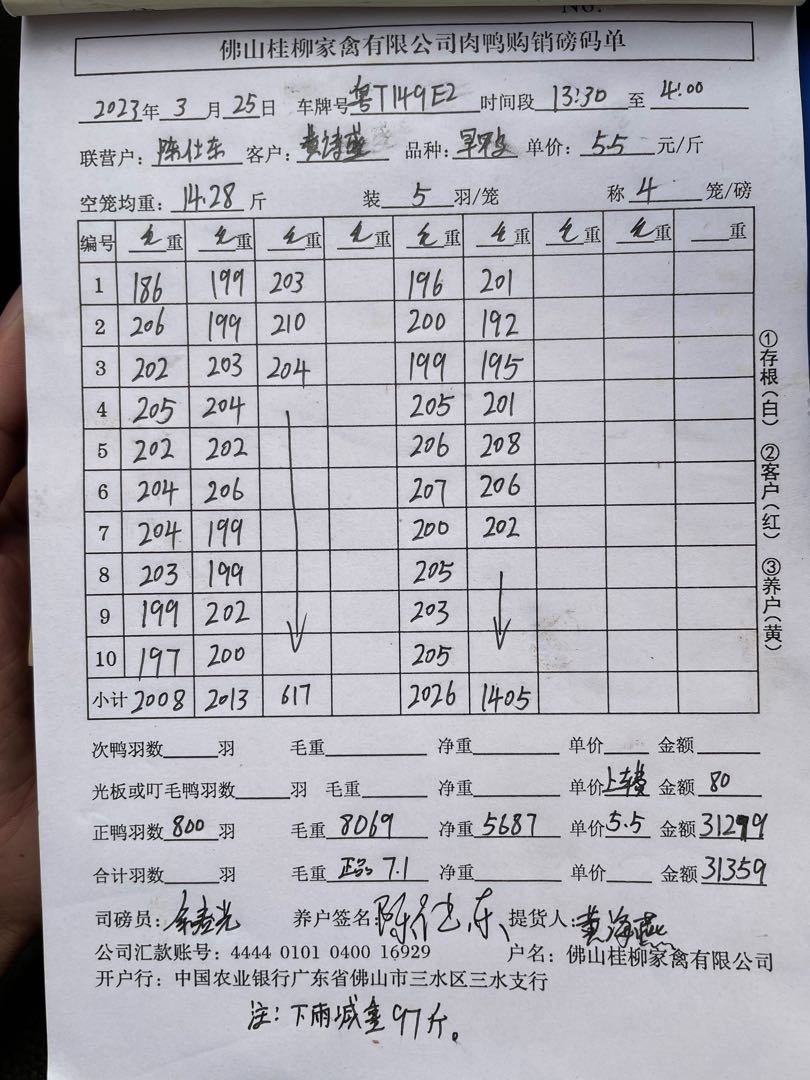 No.
佛山桂柳家禽有限公司肉鸭购销磅码单
2023年 3 月 25日 车牌号 粤T149E2 时间段 13:30 至 4:00
联营户: 陈仕东 客户: 黄海燕 品种: 旱鸭 单价: 5.5 元/斤
空笼均重: 14.28 斤 装 5 羽/笼 称 4 笼/磅
编号 毛重 毛重 毛重 重 毛重 毛重 毛重 毛重 重
1 186 199 203 196 201
2 206 199 210 200 192
3 202 203 204 199 195
4 205 204 205 201
5 202 202 206 208
6 204 206 207 206
7 204 199 200 202
8 203 199 205
9 199 202 203
10 197 200 205
小计 2008 2013 617 2026 1405
次鸭羽数 羽 毛重 净重 单价 金额
光板或叮毛鸭羽数 羽 毛重 净重 单价 上车费 金额 80
正鸭羽数 800 羽 毛重 8069 净重 5687 单价 5.5 金额 31279
合计羽数 羽 毛重 正品 7.1 净重 单价 金额 31359
司磅员: 养户签名: 陈仕东 提货人: 黄海燕
公司汇款账号: 4444 0101 0400 16929 户名: 佛山桂柳家禽有限公司
开户行: 中国农业银行广东省佛山市三水区三水支行
注: 下雨减重97斤。
①存根(白) ②客户(红) ③养户(黄)